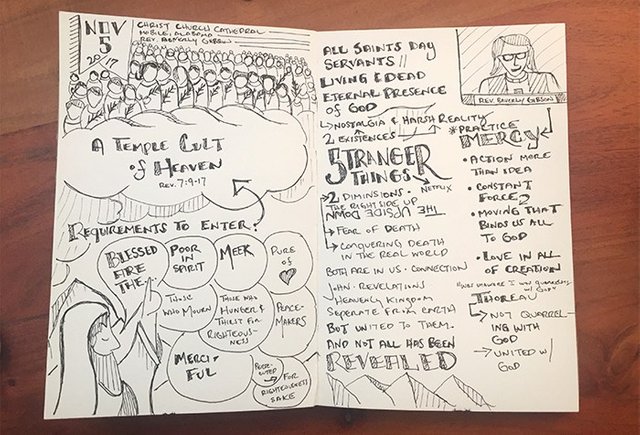 NOV
5
2017
CHRIST CHURCH CATHEDRAL
MOBILE, ALABAMA
REV. BEVERLY GIBSON
A TEMPLE CULT
OF HEAVEN
REV. 7:9-17
REQUIREMENTS TO ENTER:
BLESSED
ARE
THE...
POOR
IN
SPIRIT
MEEK
PURE
OF
THOSE
WHO MOURN
THOSE WHO
HUNGER &
THIRST FOR
RIGHTEOUS-
NESS
PEACE-
MAKERS
MERCI-
FUL
FOR
RIGHTEOUSNESS
SAKE
ALL SAINTS DAY
SERVANTS //
LIVING & DEAD
ETERNAL PRESENCE
OF GOD
NOSTALGIA & HARSH REALITY
2 EXISTENCES
STRANGER
THINGS
NETFLIX
2 DIMINSIONS.
THE RIGHT SIDE UP
THE UPSIDE DOWN
FEAR OF DEATH
CONQUERING DEATH
IN THE REAL WORLD
BOTH ARE IN US. CONNECTION
JOHN. REVELATIONS
HEAVENLY KINGDOM
SEPERATE FROM EARTH
BUT UNITED TO THEM.
AND NOT ALL HAS BEEN
REVEALED
REV. BEVERLY GIBSON
*PRACTICE
MERCY
• ACTION MORE
THAN IDEA
• CONSTANT
FORCE
• MOVING THAT
BINDS US ALL
TO GOD
• LOVE IN ALL
OF CREATION
THOREAU
NOT QUARREL-
ING WITH
GOD
UNITED W/
GOD